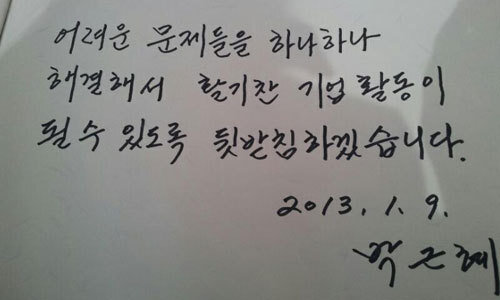 어려운 문제들을 하나하나
해결해서 활기찬 기업활동이
될 수 있도록 뒷받침하겠습니다.
2013. 1. 9.
박근혜